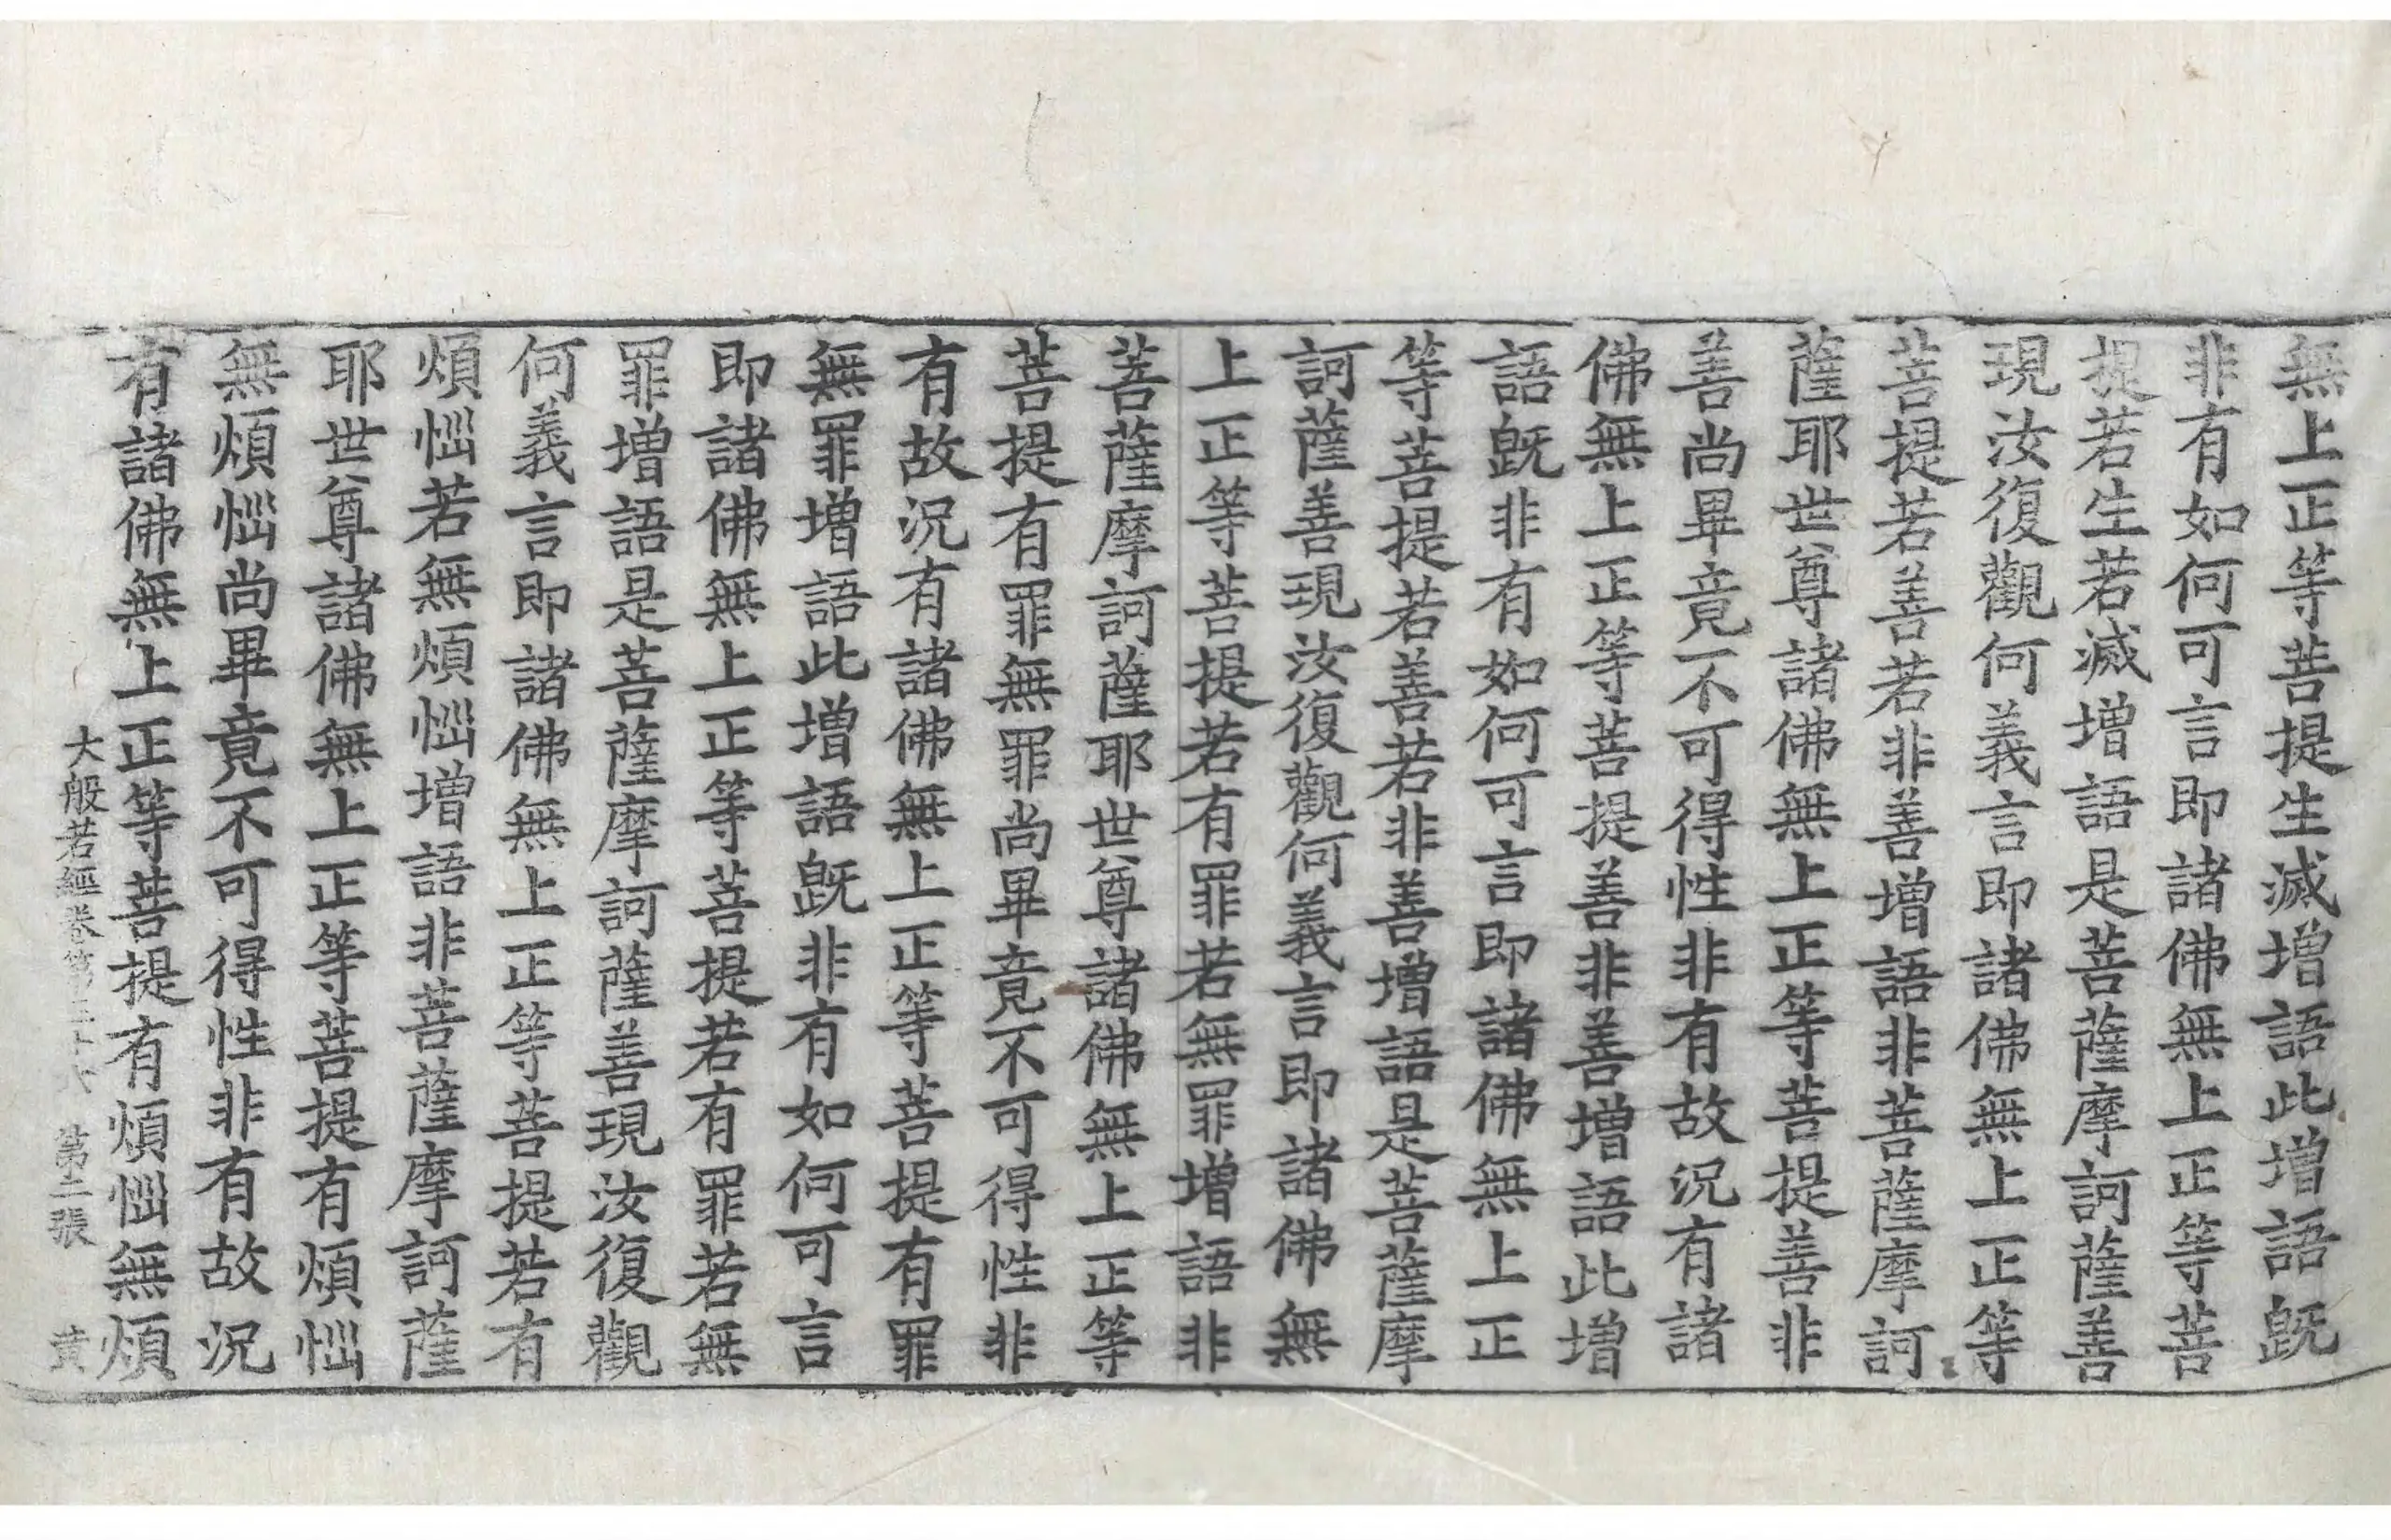 無上正等菩提生滅增語此增語旣
非有如何可言即諸佛無上正等菩
提若生若滅增語是菩薩摩訶薩善
現汝復觀何義言即諸佛無上正等
菩提若善若非善增語非菩薩摩訶
薩耶世尊諸佛無上正等菩提善非
善尚畢竟不可得性非有故況有諸
佛無上正等菩提善非善增語此增
語旣非有如何可言即諸佛無上正
等菩提若善若非善增語是菩薩摩
訶薩善現汝復觀何義言即諸佛無
上正等菩提若有罪若無罪增語非
菩薩摩訶薩耶世尊諸佛無上正等
菩提有罪無罪尚畢竟不可得性非
有故況有諸佛無上正等菩提有罪
無罪增語此增語旣非有如何可言
即諸佛無上正等菩提若有罪若無
罪增語是菩薩摩訶薩善現汝復觀
何義言即諸佛無上正等菩提若有
煩惱若無煩惱增語非菩薩摩訶薩
耶世尊諸佛無上正等菩提有煩惱
無煩惱尚畢竟不可得性非有故況
有諸佛無上正等菩提有煩惱無煩
大般若經卷第三十六 第二張 黄